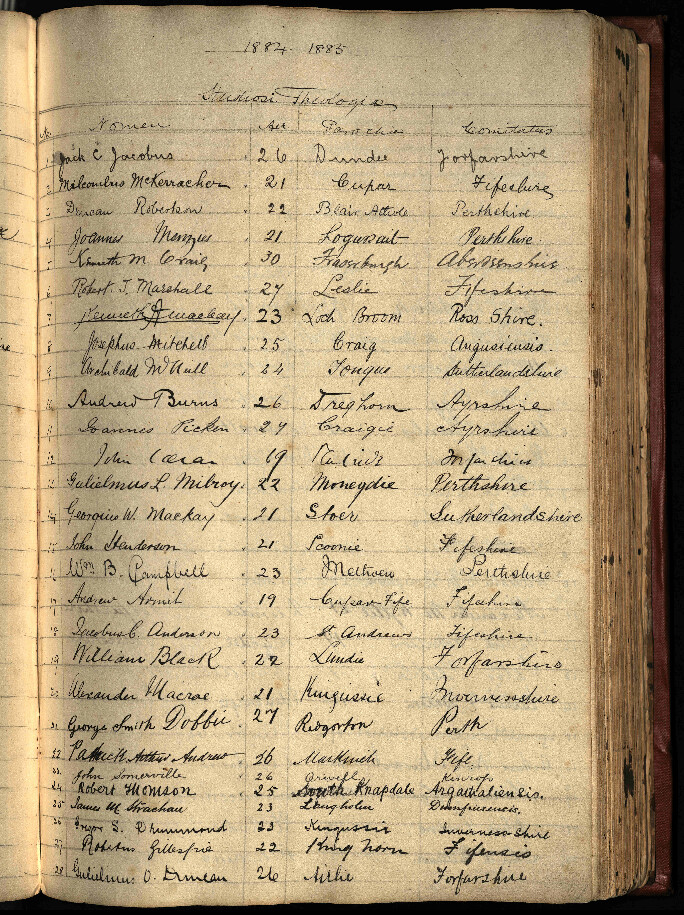 1884 1885
Studiosi Theologia
No. Nomen Aet Parochia Comitatus
1 Jack C Jacobus 26 Dundee Forfarshire
2 Malcombus McKerracher 21 Cupar Fifeshire
3 Duncan Robertson 22 Blair Athole Perthshire
4 Joannes Menzies 21 Logierait Perthshire
5 Kenneth M Craig 30 Fraserburgh Aberdeenshire
6 Robert T. Marshall 27 Leslie Fifeshire
7 Kenneth J Macleay 23 Loch Broom Ross Shire.
8 Josephus Mitchell 25 Craig Angusiensis.
9 Archibald 24 Tongue Sutherlandshire
10 Andrew Burns 26 Dreghorn Ayrshire
11 Joannes Picken 27 Craigie Ayrshire
12 John 19 Forfarshire
13 Gulielmus L. Milroy 22 Moneydie Perthshire
14 Georgius W. Mackay 21 Stoer Sutherlandshire
15 John Henderson 21 Scoonie Fifeshire
16 Wm B. Campbell 23 Methven Perthshire
17 Andrew Armit 19 Cupar-Fife Fifeshire
18 Jacobus C. Anderson 23 St Andrews Fifeshire
19 William Black 22 Lundie Forfarshire
20 Alexander Macrae 21 Kingussie Invernessshire
21 George Smith Dobbie 27 Redgorton Perth
22 Patrick Arthur Andrew 26 Markinch Fife
23 John Somerville 26 Orwell Kinross
24 Robert Thomson 25 South Knapdale Argatheliensis.
25 James M Strachan 23 Langholm Dumfriesensis.
26 Gregor S. Drummond 23 Kingussie Inverness Shire
27 Robertus Gillespie 22 King horn Fifensis
28 Gulielmus O. Duncan 26 Airlie Forfarshire